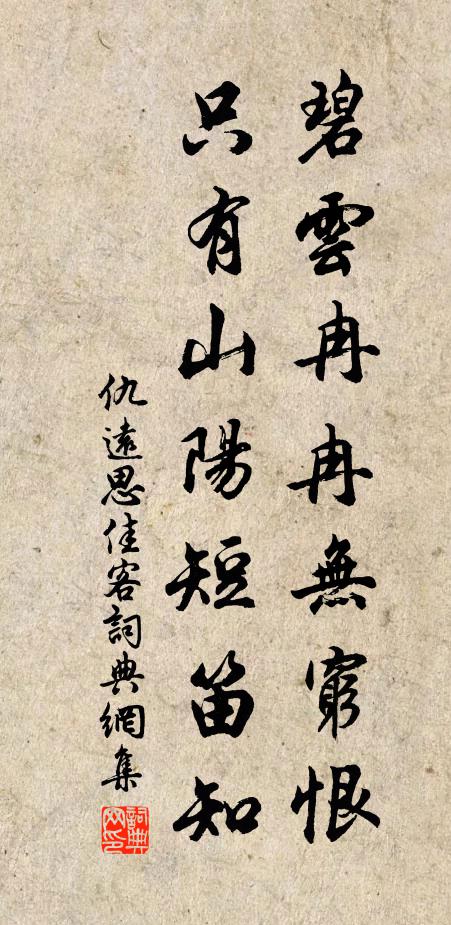 碧雲冉冉無窮恨
只有山陽短笛知
仇遠思佳客詞典網集
詞典
网印